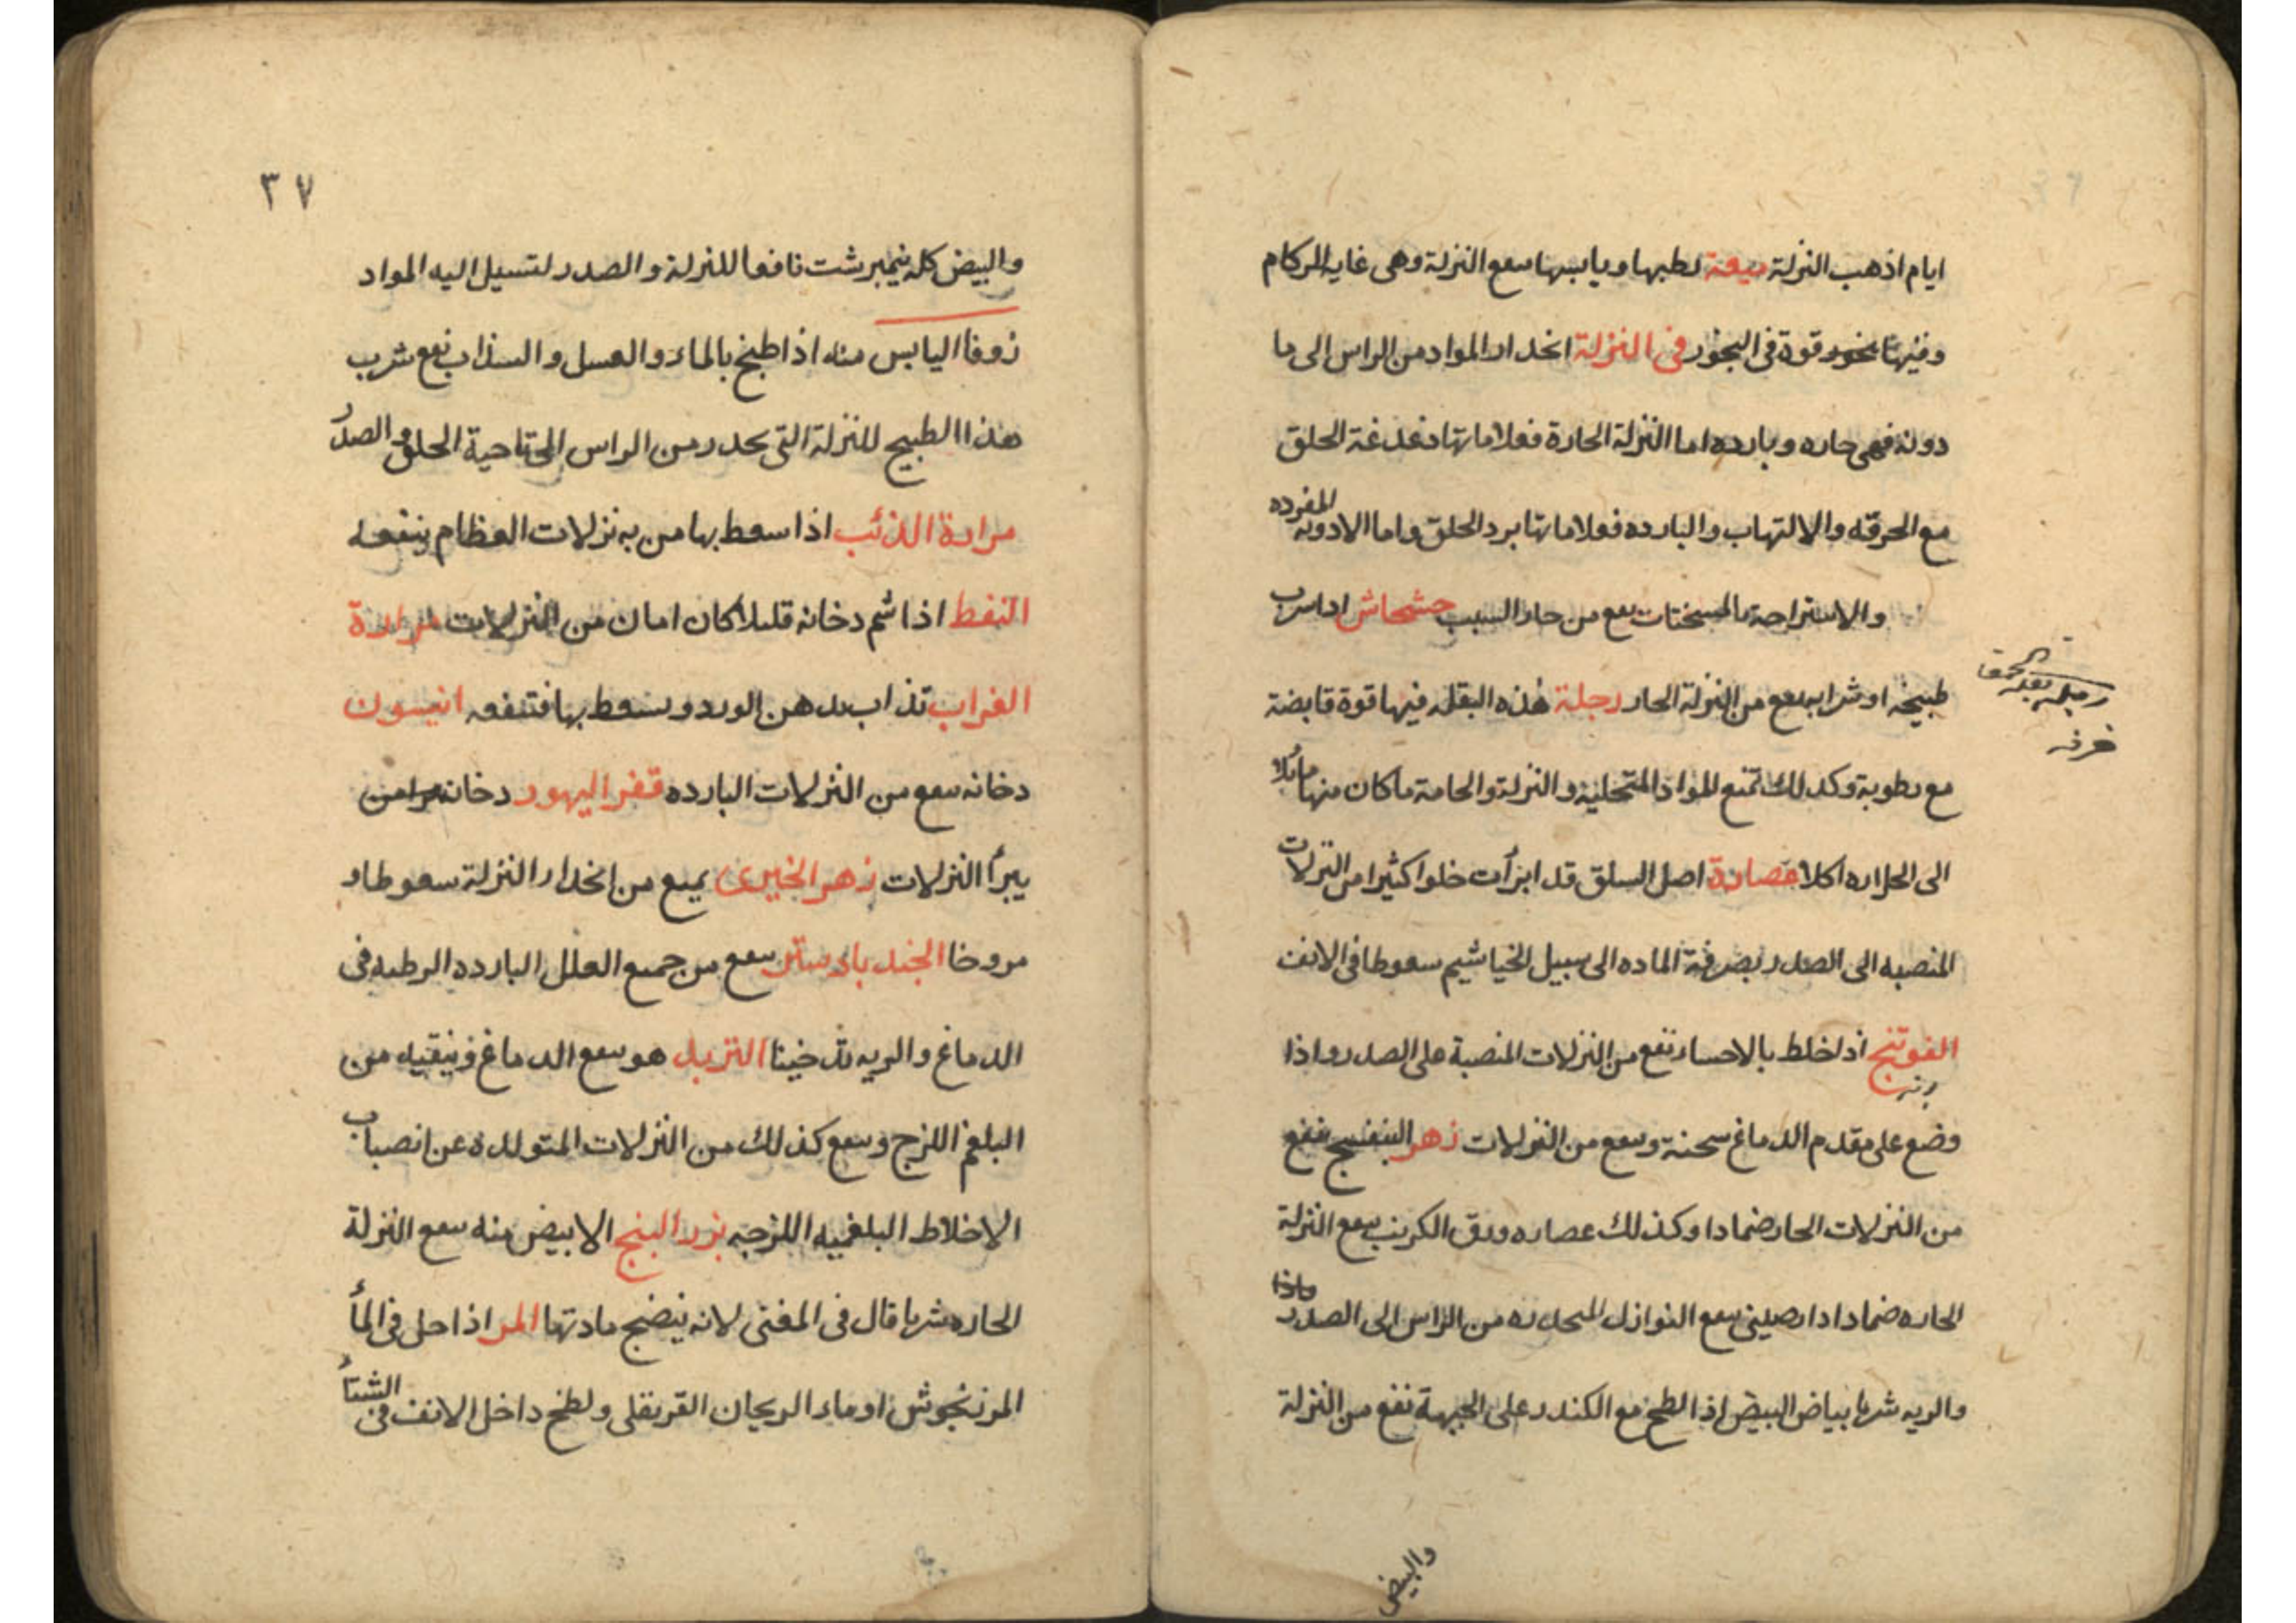 ايام اذهب النزلة ميعة رطبها ويابسها ينفع النزلة وهى غاية للزكام
وفيها بخور قوة فى البخور فى النزلة انحدار المواد من الراس الى ما
دونه فهى حاره وبارده اما النزلة الحارة فعلاماتها دغدغة الحلق
مع الحرقه والالتهاب والبارده فعلاماتها برد الحلق واما الادويه المفرده
والاستراحة بالمسخنات ينفع من حار السبب خشخاش اذا شرب
طبيخه او شرابه ينفع من النزلة الحار رجلة هذه البقله فيها قوة قابضة
رجله بقلة الحمقا
فرفه
مع رطوبة وكذلك تمنع المواد المتحلبة والنزلة والحامة ما كان منها مائلا
الى الحراره اكلا عصارة اصل السلق قد ابرأت خلوا كثيرا من النزلات
المنصبه الى الصدر بصرفة الماده الى سبيل الخياشيم سعوطا فى الانف
الفوتنج اذا خلط بالاحسا ينفع من النزلات المنصبة على الصدر واذا
وضع على مقدم الدماغ سخنه وينفع من النزلات زهر البنفسج ينفع
من النزلات الحار ضمادا وكذلك عصاره ورق الكرنب ينفع النزلة
الحاره ضمادا دارصينى ينفع النوازل المنحدره من الراس الى الصدر
والريه شربا بياض البيض اذا لطخ مع الكندر على الجبهة نفع من النزلة
والبيض
٣٧
والبيض كله نيمبرشت نافعا للنزلة والصدر لتسيل اليه المواد
زوفا اليابس منه اذا طبخ بالماء والعسل والسذاب نفع شرب
هذا الطبيخ للنزلة التى تحدر من الراس الى ناحية الحلق والصدر
مرارة الذئب اذا سعط بها من به نزلات العظام ينفعه
النفط اذا شم دخانه قليلا كان امان من النزلات مرارة
الغراب تذاب بدهن الورد ويسعط بها فتنفعه انيسون
دخانه ينفع من النزلات البارده قفر اليهود دخانه
يبرأ النزلات زهر الخيرى يمنع من انحدار النزلة سعوطا و
مروخا الجند بادستر ينفع من جميع العلل البارده الرطبه فى
الدماغ والريه تدخينا التربد هو ينفع الدماغ وينقيه من
البلغم اللزج وينفع كذلك من النزلات المتولده عن انصباب
الاخلاط البلغميه اللزجه بزر البنج الابيض منه ينفع النزلة
الحاره شربا قال فى المغنى لانه ينضج مادتها المر اذا حل فى الماء
المرزنجوش او ماء الريحان القرنفلى ولطخ داخل الانف فى الشتاء